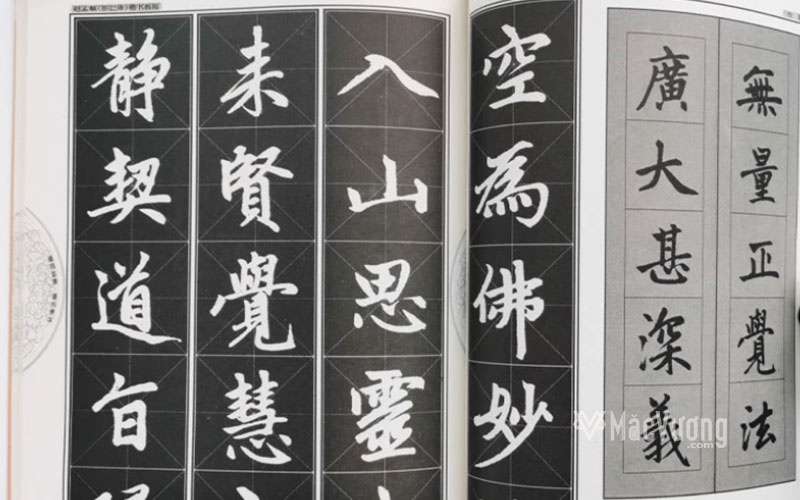 無量正覺法
廣大甚深義
空為佛妙
入山思靈
来賢覺慧
静契道旨
MãoVương.com